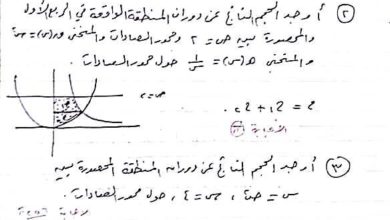 ② أوجد الحجم الناتج عن دوران المنطقة الواقعة في الربع الأول
والمحصورة بين ص = 2 ومحور الصادات والمنحنى ق(س) = س²
والمنحنى هـ(س) = 1/س حول محور الصادات
ص = 2
ح = ح1 + ح2
الإجابة
③ أوجد الحجم الناتج عن دوران المنطقة المحصورة بين
س = ص²، ص = 4، حول محور الصادات.